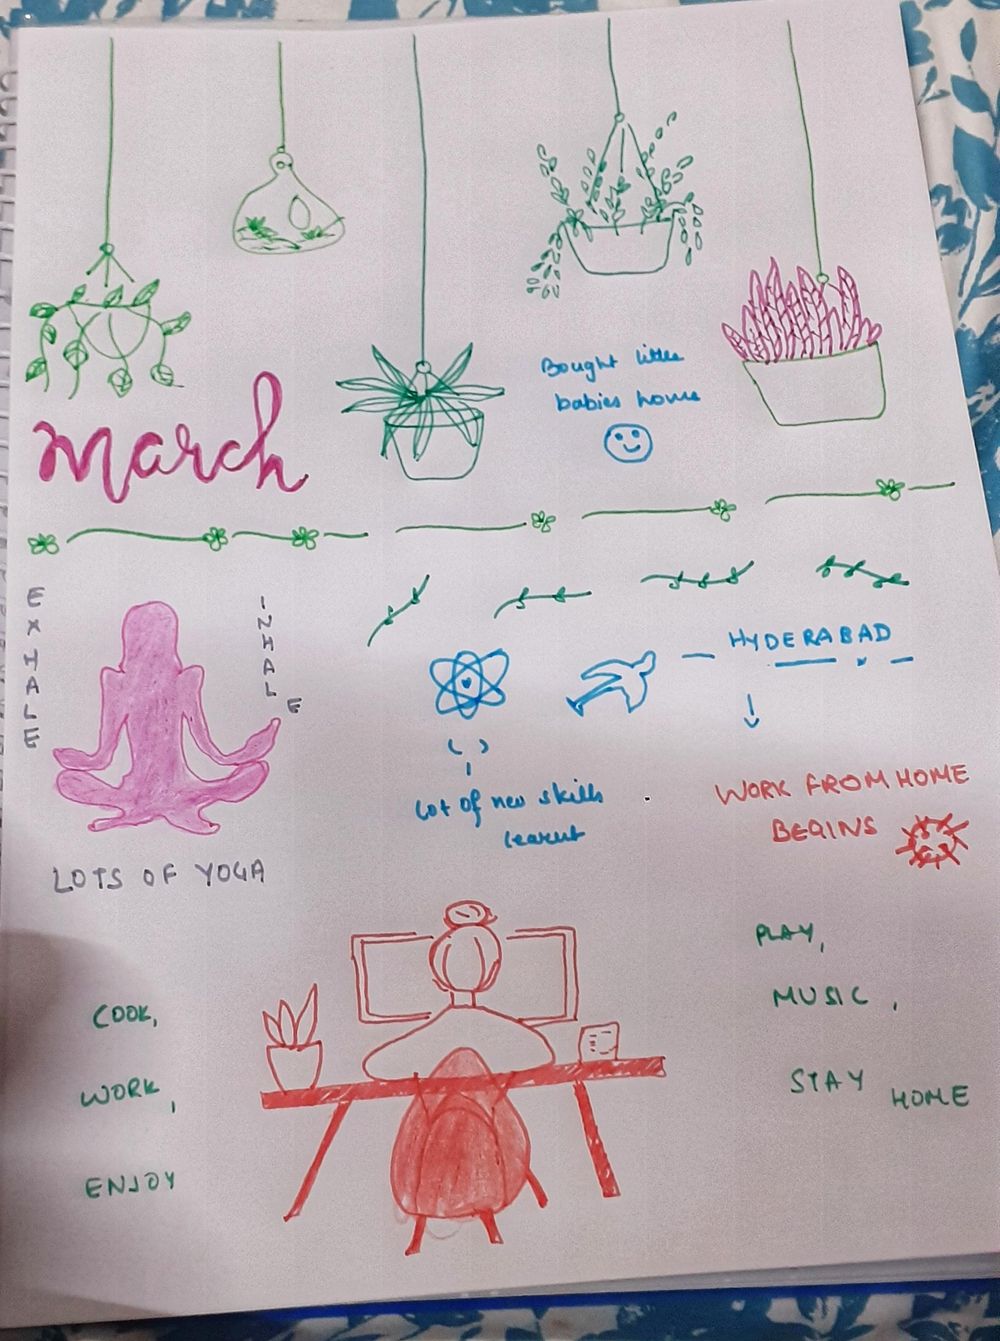 Bought little
babies home
March
EXHALE
INHALE
HYDERABAD
Lot of new skills
learnt
WORK FROM HOME
BEGINS
LOTS OF YOGA
PLAY,
MUSIC,
STAY HOME
COOK,
WORK,
ENJOY